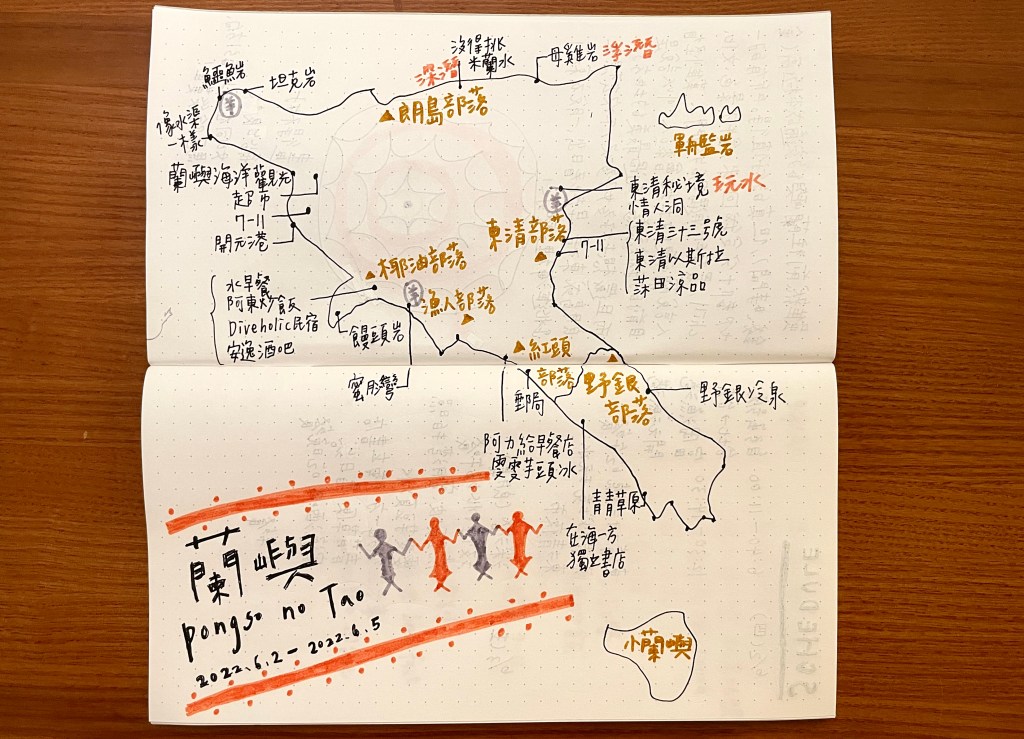 沒得挑
米蘭水
母雞岩
浮潛
深潛
鱷魚岩
坦克岩
羊
朗島部落
軍艦岩
像水渠
一樣
蘭嶼海洋觀光
超市
7-11
開元港
東清秘境 玩水
情人洞
羊
東清部落
7-11
東清三十三號
東清以斯拉
菻田涼品
椰油部落
水早餐
阿東炒飯
Diveholic民宿
安逸酒吧
羊
漁人部落
饅頭岩
蜜月灣
紅頭
部落
郵局
野銀
部落
野銀冷泉
阿力給早餐店
雯雯芋頭冰
青青草原
在海一方
獨立書店
蘭嶼
pongso no Tao
2022.6.2-2022.6.5
小蘭嶼
SCHEDULE